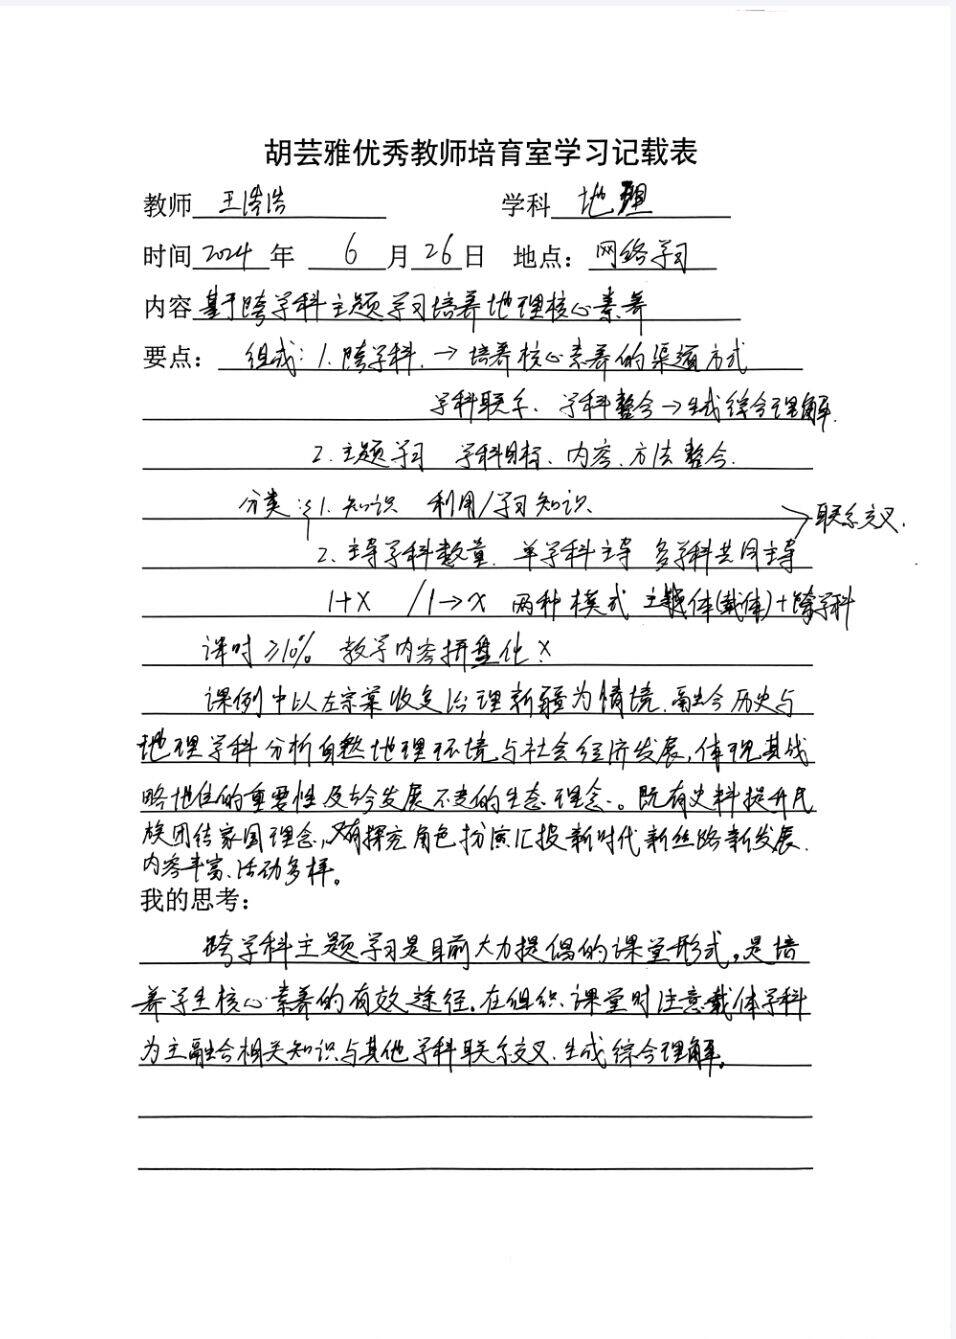 胡芸雅优秀教师培育室学习记载表
教师 王浩浩 学科 地理
时间 2024 年 6 月 26 日 地点: 网络学习
内容 基于跨学科主题学习培养地理核心素养
要点: 组成: 1. 跨学科. → 培养核心素养的渠道方式
学科联系、学科整合→生成综合理解.
2. 主题学习 学科目标、内容、方法整合.
分类: { 1. 知识 利用/学习知识
联系交叉.
2. 主导学科数量. 单学科主导 多学科共同主导
1+X /1→X 两种模式 主题体(载体)+跨学科
课时≥10% 教学内容拼盘化 ×
课例中以左宗棠收复治理新疆为情境.融合历史与
地理学科分析自然地理环境与社会经济发展,体现其战
略地位的重要性及古今发展不变的生态理念。既有史料提升民
族团结家国理念,又有探究角色扮演汇报新时代新丝路新发展.
内容丰富、活动多样。
我的思考:
跨学科主题学习是目前大力提倡的课堂形式,是培
养学生核心素养的有效途径.在组织课堂时注意载体学科
为主融合相关知识与其他学科联系交叉.生成综合理解.